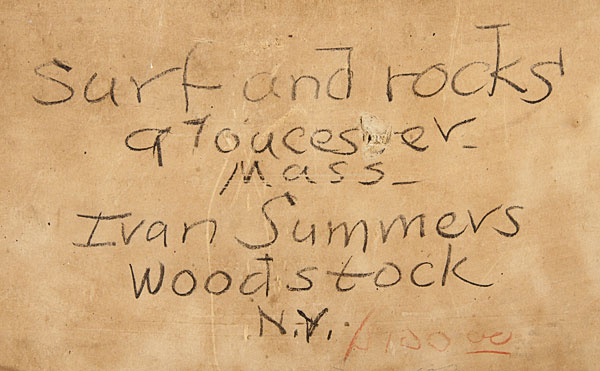 Surf and rocks
Gloucester
Mass
Ivan Summers
Woodstock
N.Y.